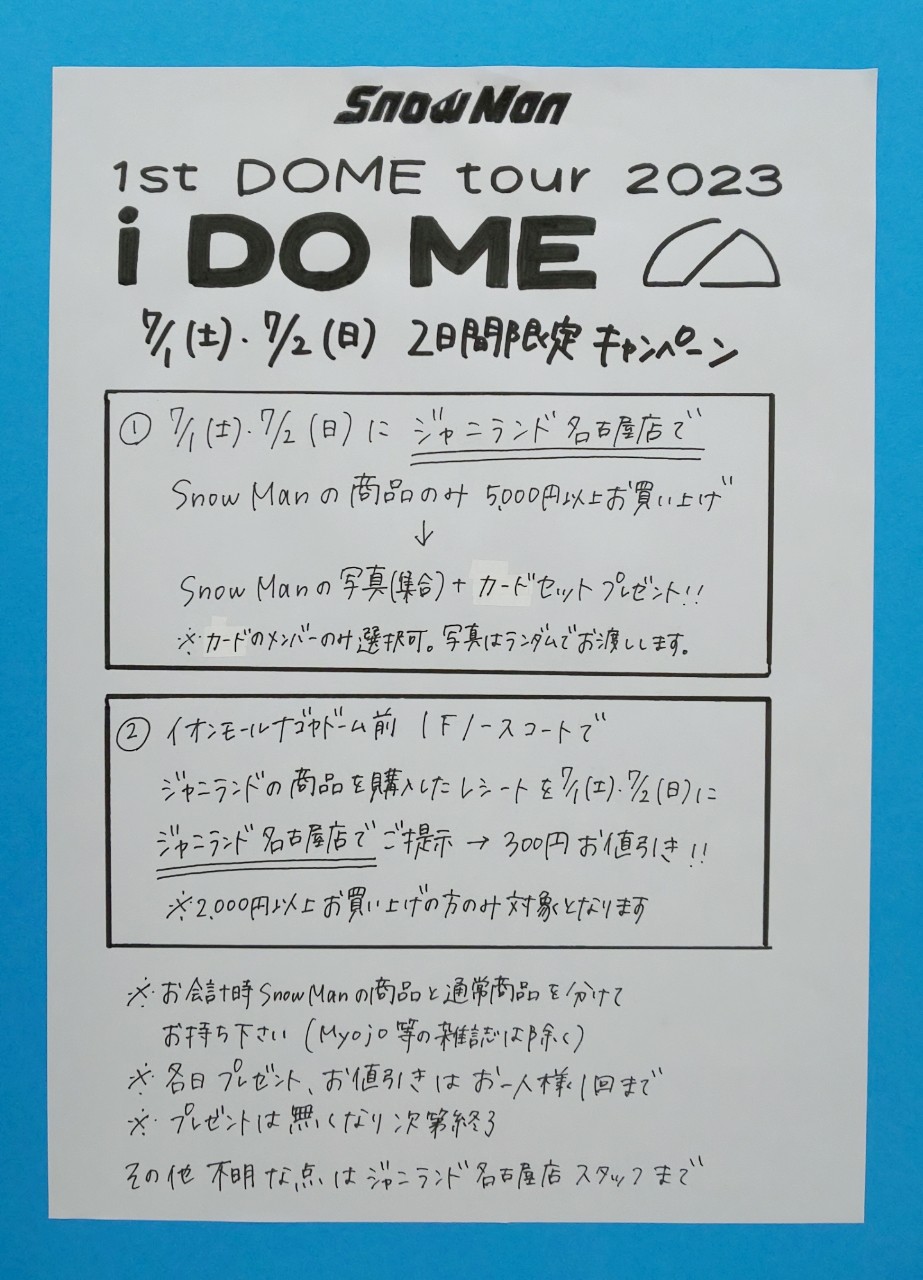 Snow Man
1st DOME tour 2023
i DO ME
7/1(土)・7/2(日) 2日間限定 キャンペーン
① 7/1(土)・7/2(日)に ジャニランド 名古屋店で
Snow Manの商品のみ 5,000円以上お買い上げ
↓
Snow Manの写真(集合)+ カードセット プレゼント!!
※カードのメンバーのみ選択可。写真はランダムでお渡しします。
② イオンモールナゴヤドーム前 1Fノースコートで
ジャニランドの商品を購入したレシートを7/1(土)・7/2(日)に
ジャニランド 名古屋店で ご提示 → 300円 お値引き!!
※2,000円以上お買い上げの方のみ対象となります
※お会計時SnowManの商品と通常商品を分けて
お持ち下さい (Myojo等の雑誌は除く)
※各日プレゼント、お値引きはお一人様1回まで
※プレゼントは無くなり次第終了
その他 不明な点はジャニランド名古屋店 スタッフまで